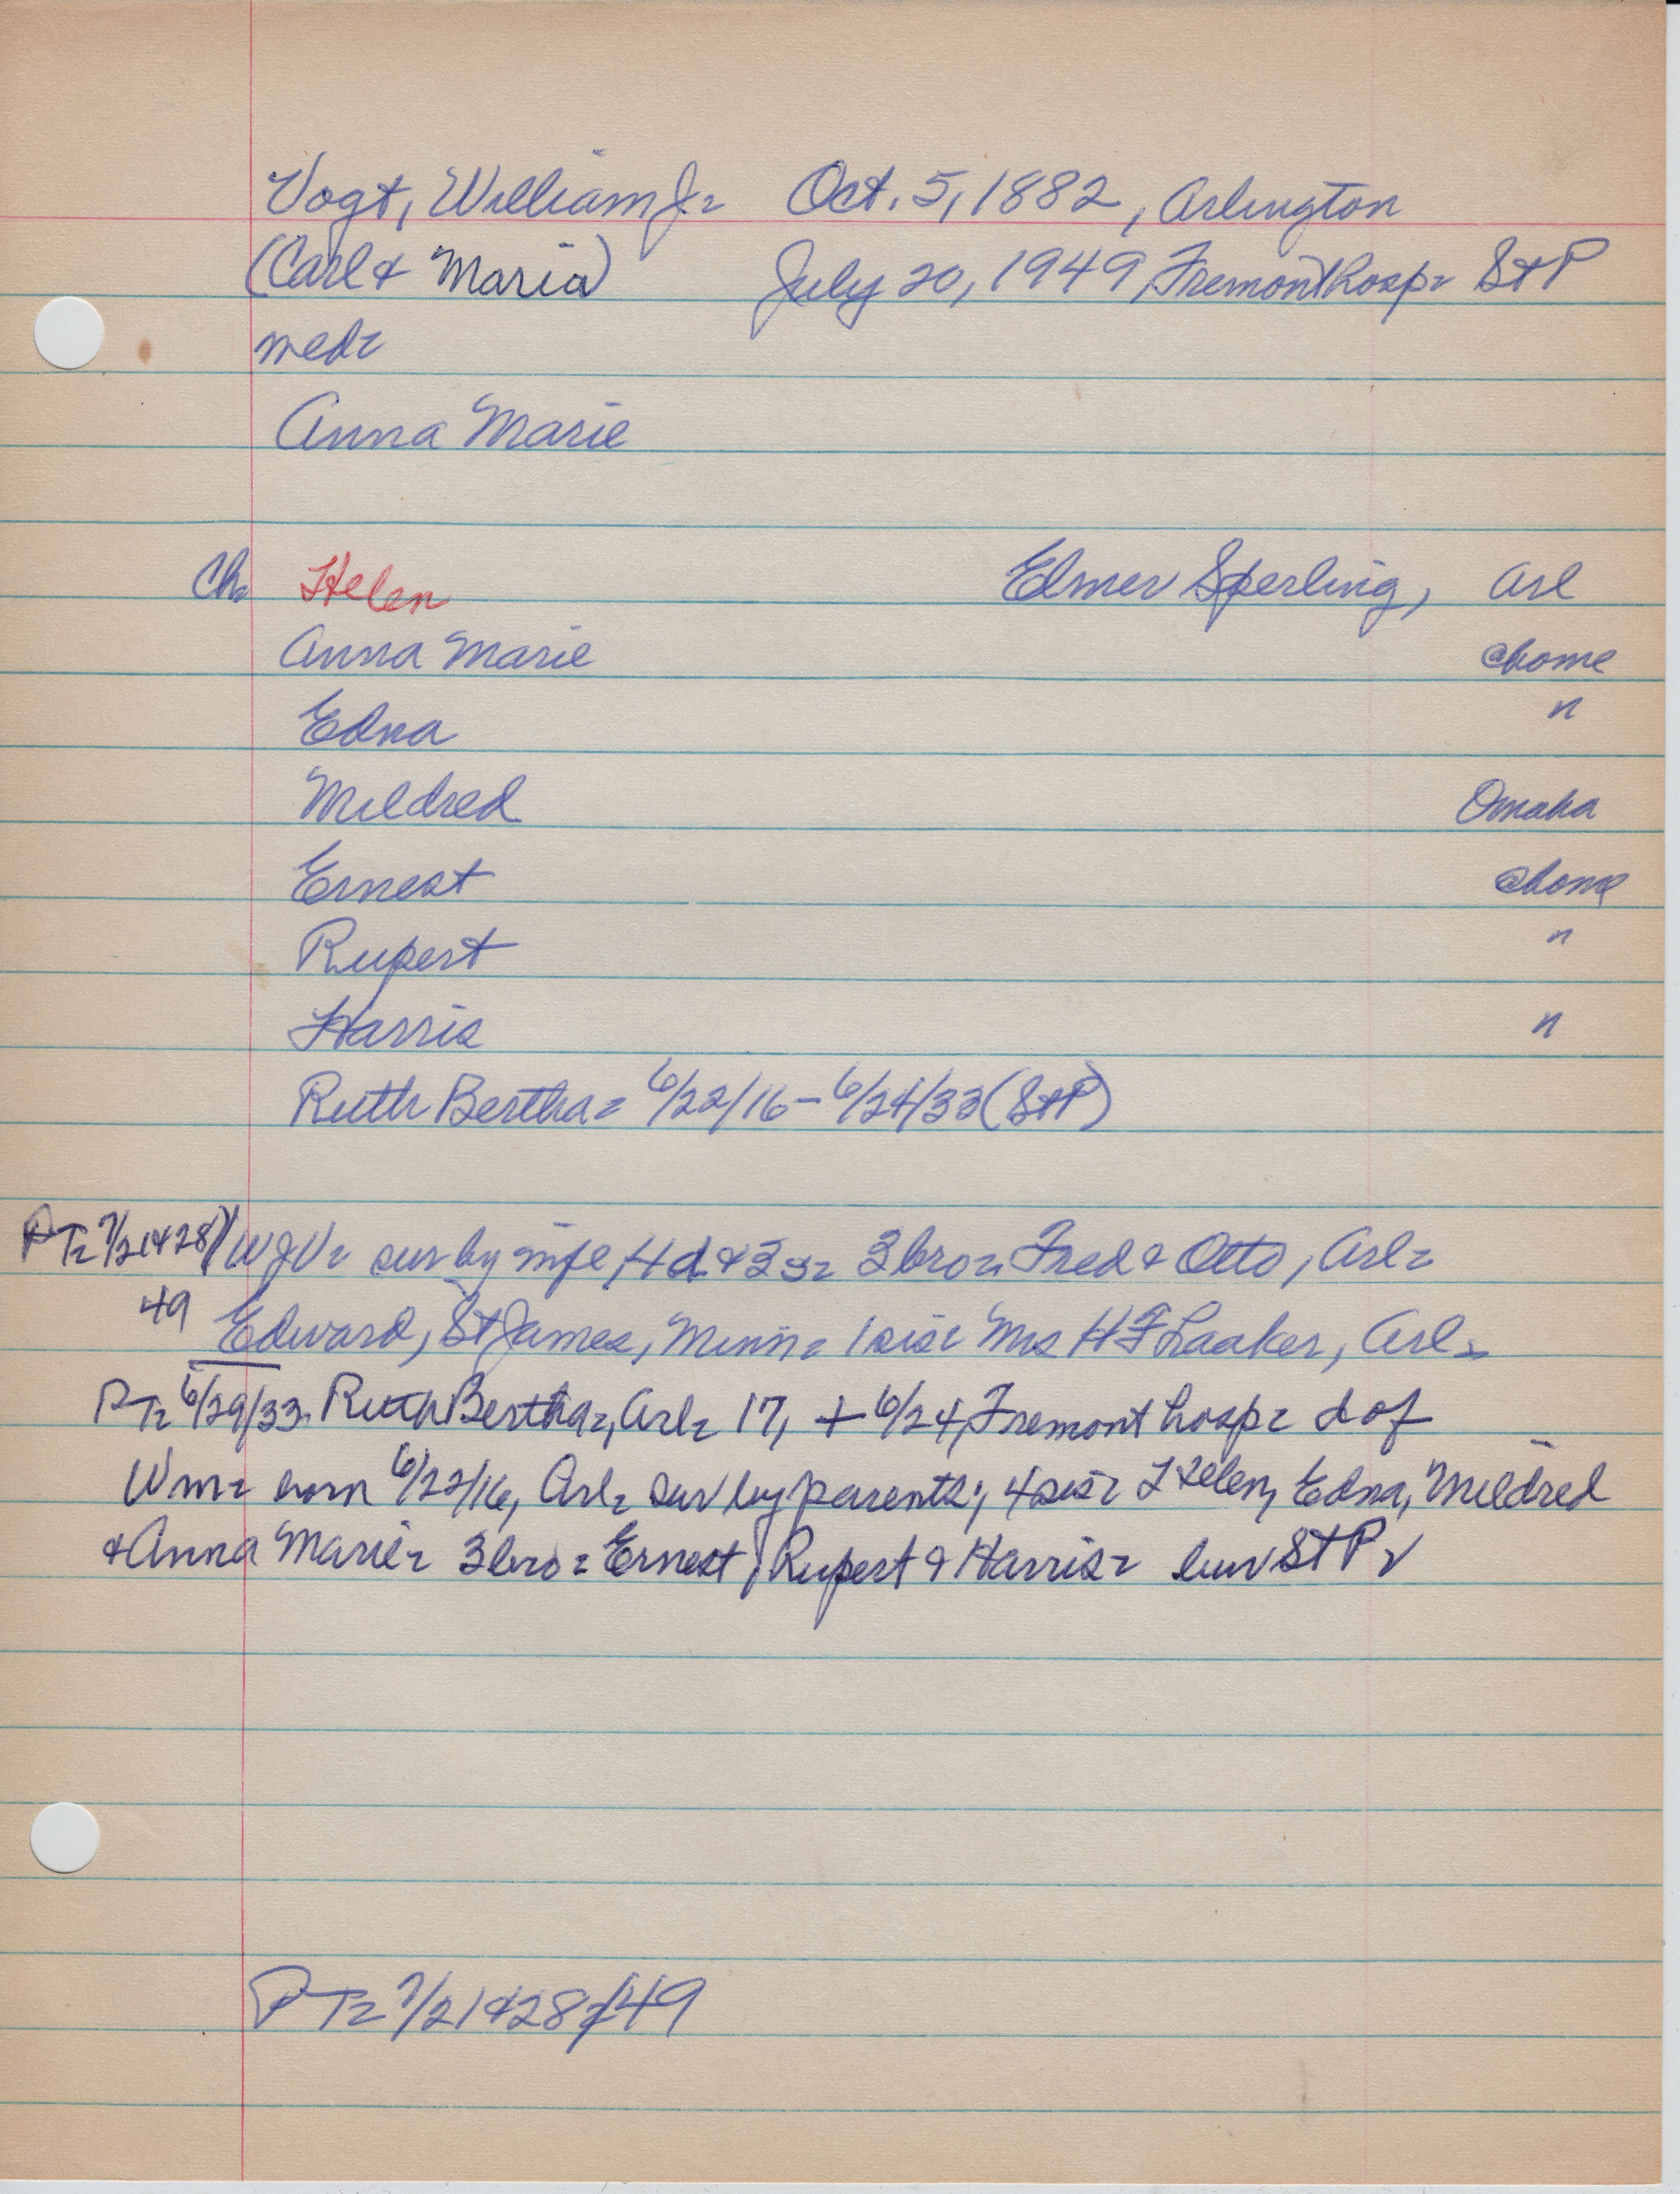 Vogt, William J= Oct. 5, 1882, Arlington
(Carl & Maria) July 20, 1949, Fremont hosp= St P
med=
Anna Marie
Ch= Helen Elmer Sperling, Arl
Anna Marie @home
Edna "
Mildred Omaha
Ernest @home
Rupert "
Harris "
Ruth Bertha= 6/22/16-6/24/33 (St P)
PT= 7/21&28/ WJV= sur by wife, 4 d & 3 s= 3 bro= Fred & Otto, Arl=
49 Edward, St James, Minn= 1 sis= Mrs H F Laaker, Arl=
PT= 6/29/33. Ruth Bertha=, Arl= 17, + 6/24, Fremont hosp= d of
Wm= born 6/22/16, Arl= sur by parents; 4 sis= Helen, Edna, Mildred
& Anna Marie= 3 bro= Ernest, Rupert & Harris= bur St P=
PT= 7/21&28/49